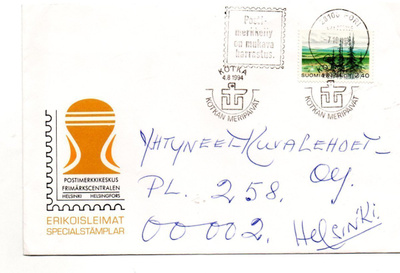 Posti-
merkkeily
on mukava
harrastus.
KOTKA
4.8.1994
KOTKAN MERIPÄIVÄT
KOTKAN MERIPÄIVÄT
SUOMI
POSTIMERKKIKESKUS
FRIMÄRKSCENTRALEN
HELSINKI HELSINGFORS
ERIKOISLEIMAT
SPECIALSTÄMPLAR
YHTYNEET-KUVALEHDET-
OY.
PL. 258.
00002. Helsinki.